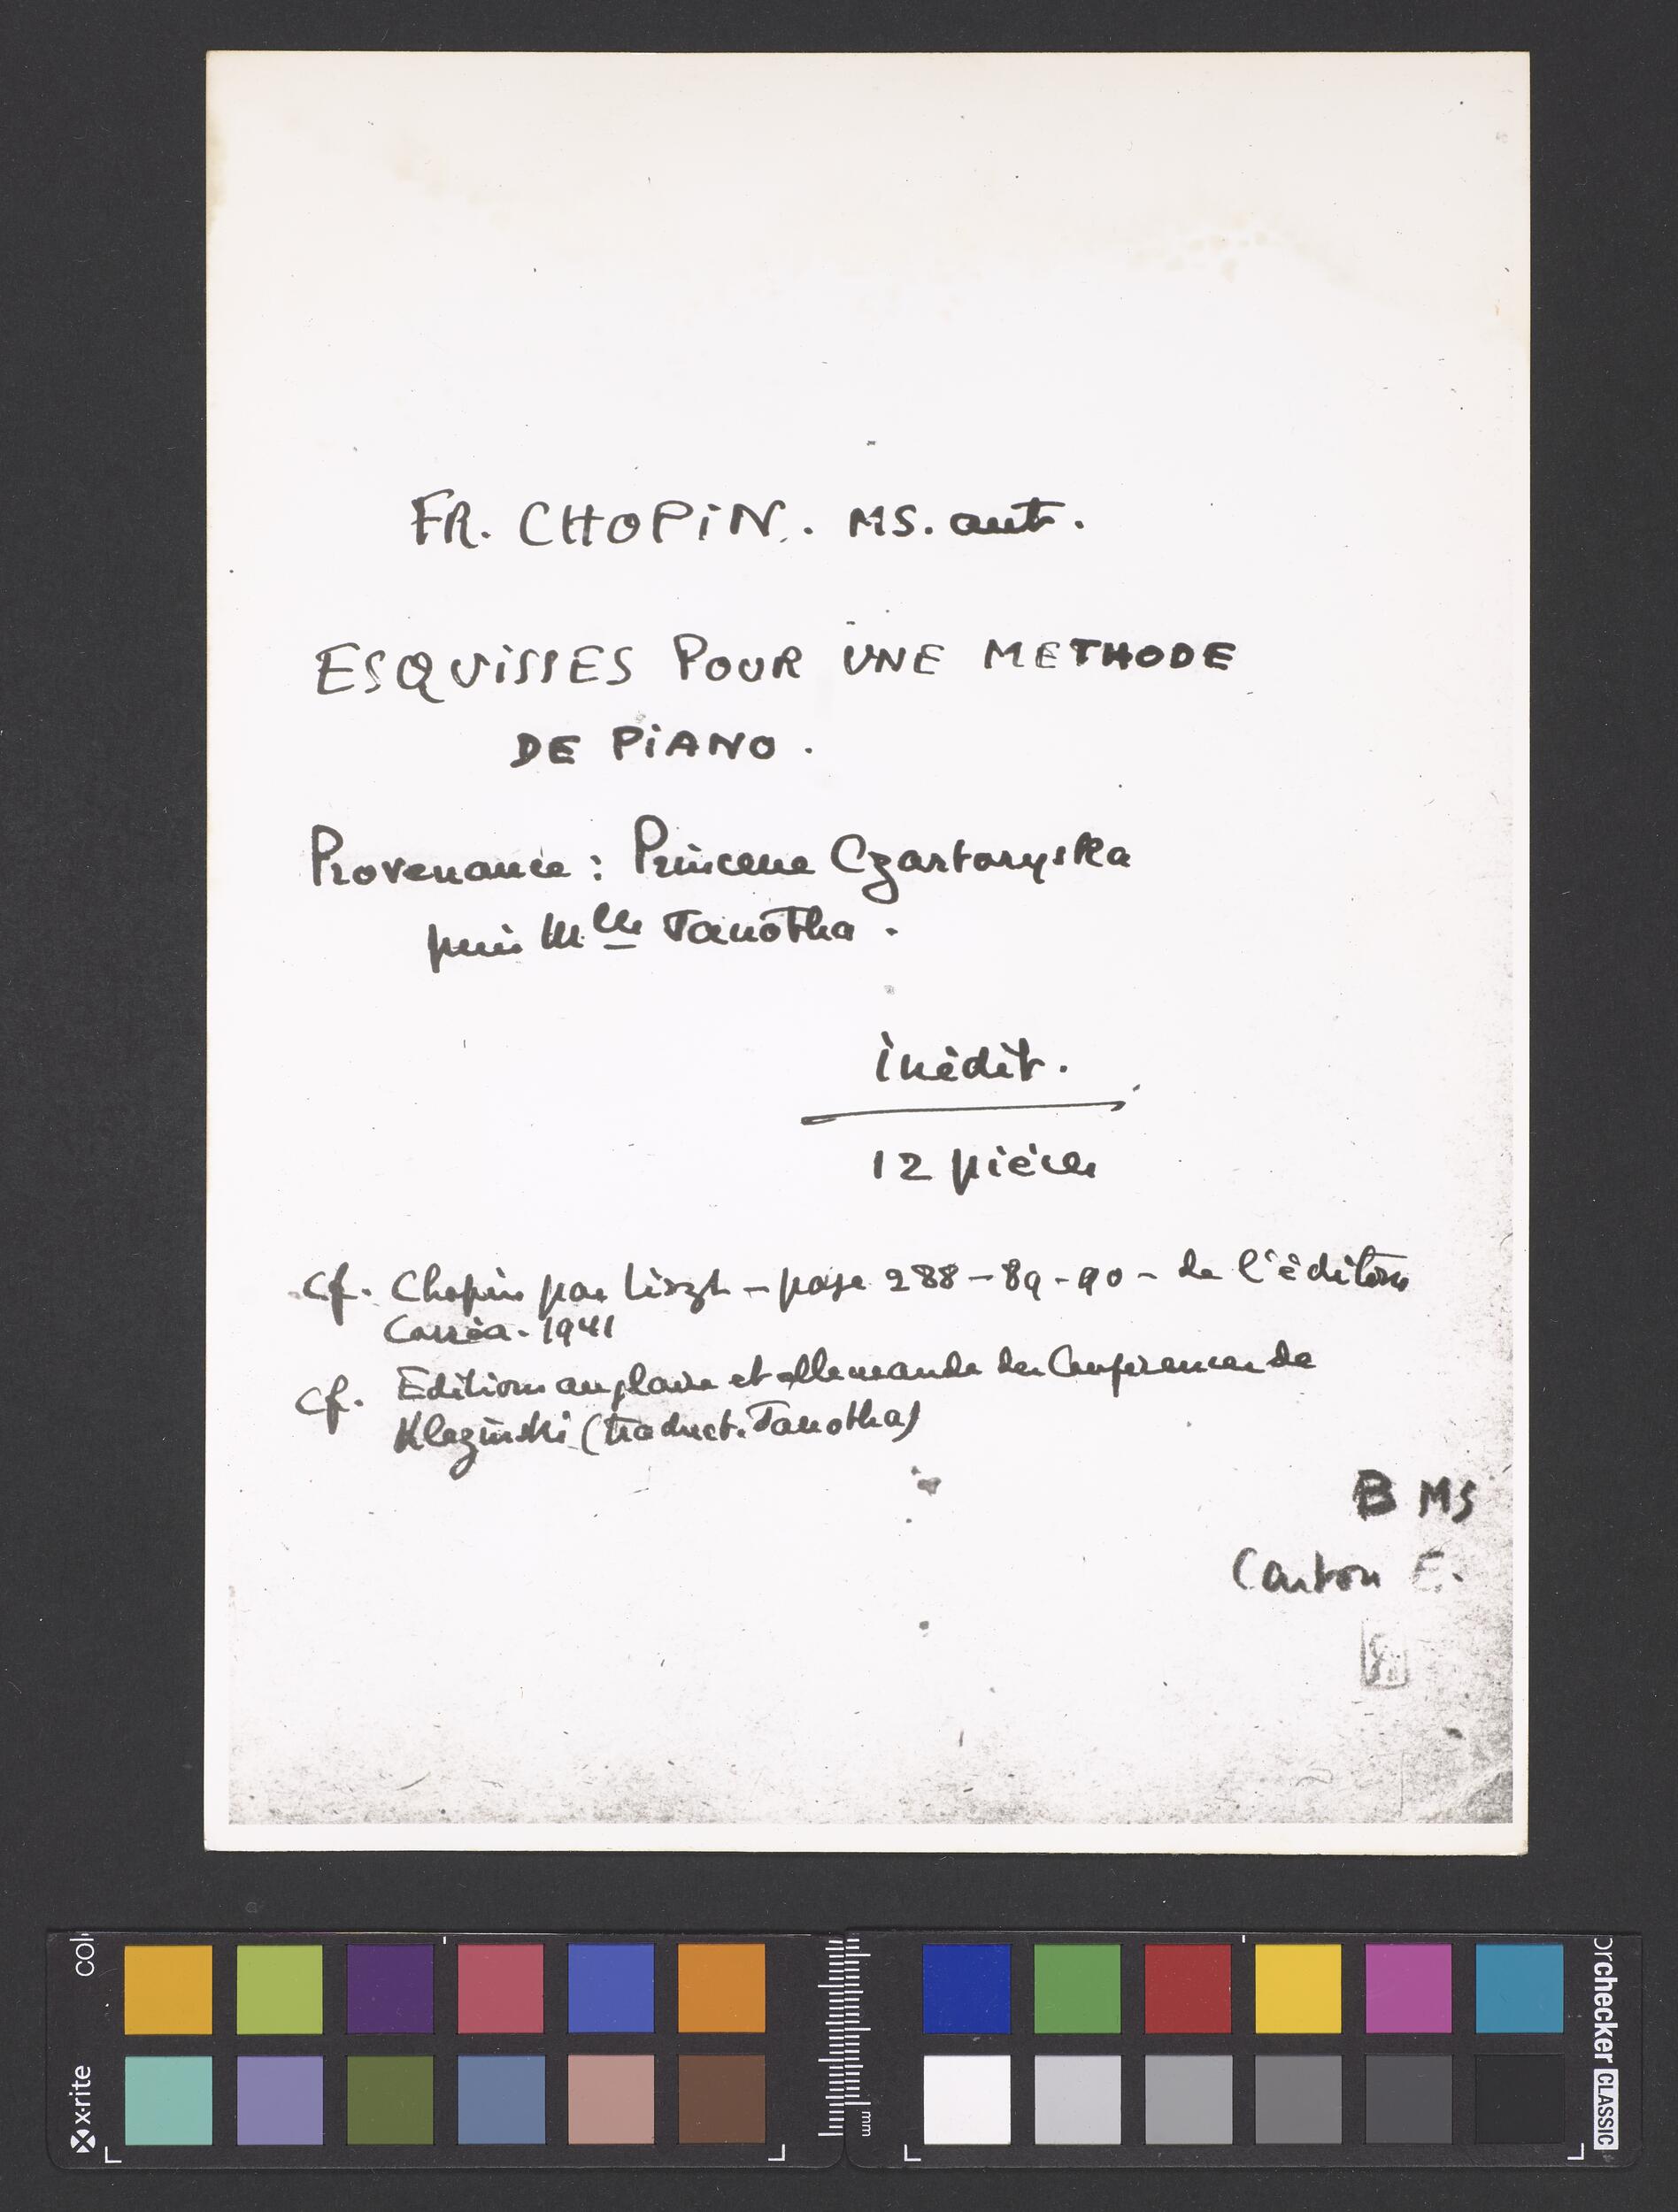 FR. CHOPIN. MS. aut.
ESQUISSES POUR UNE METHODE
DE PIANO.
Provenance : Princesse Czartoryska
puis Mlle Janotha.
inédit.
12 pièces
cf. Chopin par Liszt – page 288–89-90 – de l'édition
Corrèa. 1941
cf. Editions anglaise et allemande des Conférences de
Kleczinski (traduct. Janotha)
B MS
Carton E.
x·rite
colorchecker CLASSIC
mm